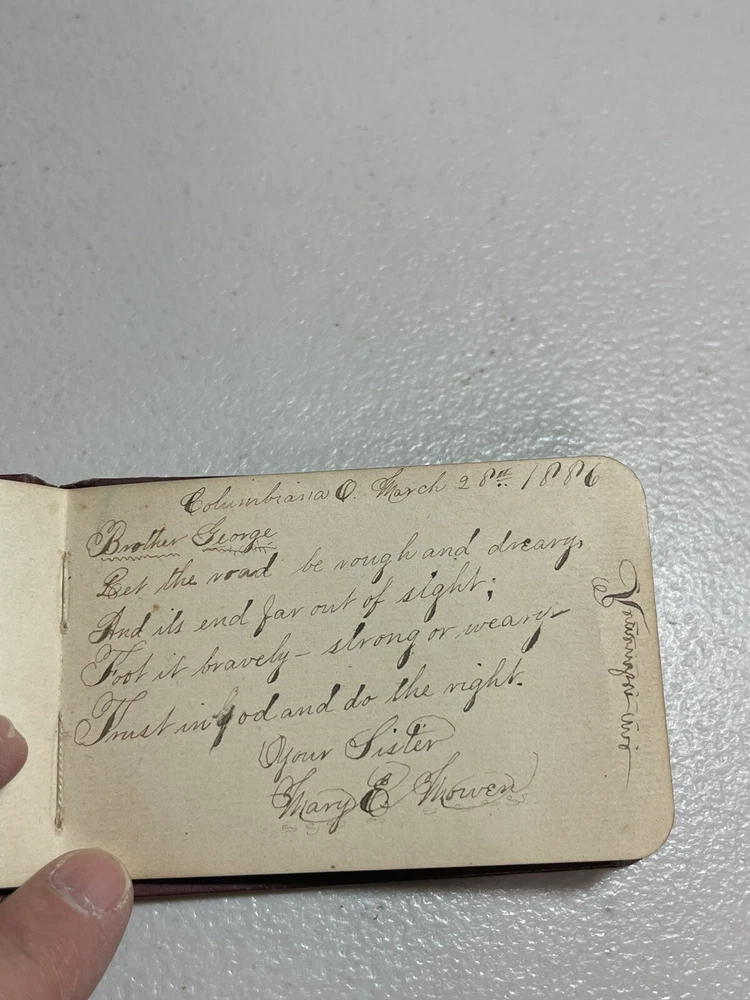 Columbiana O. March 28th 1886
Brother George
Let the road be rough and dreary,
And its end far out of sight;
Foot it bravely – strong or weary
Trust in God and do the right.
Your Sister
Mary E. Mowen